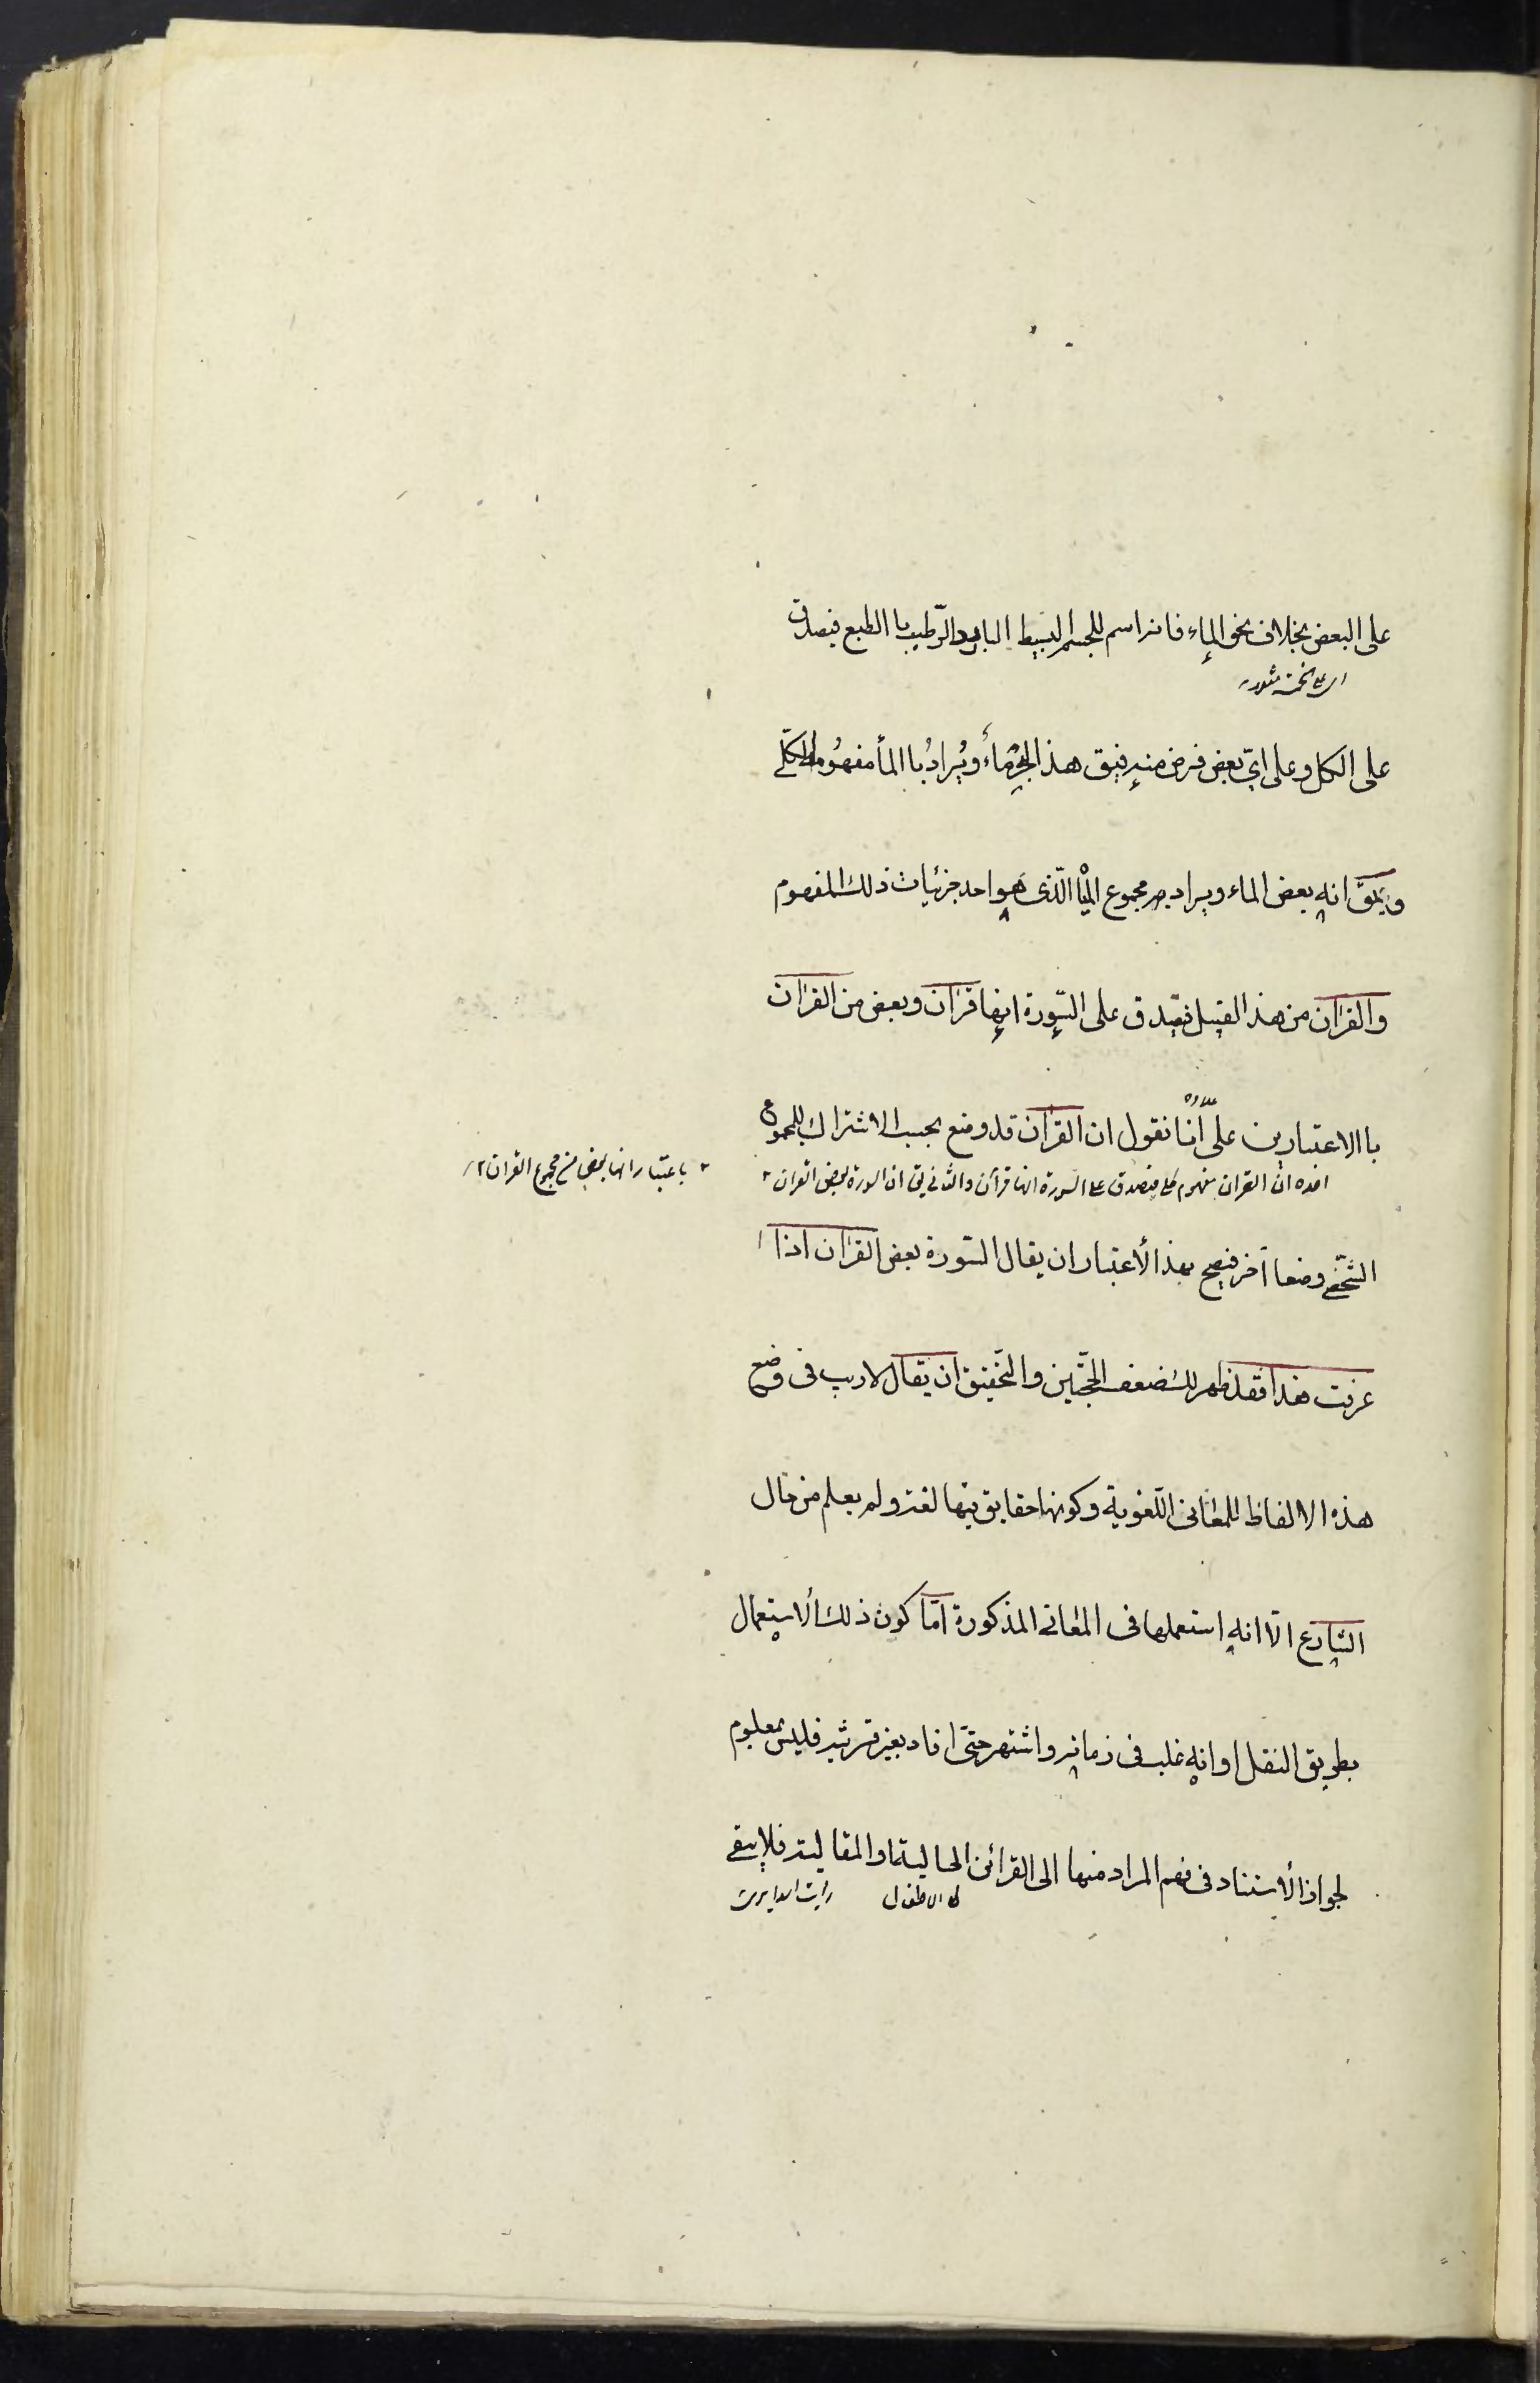 على البعض بخلاف نحو الماء فانه اسم للجسم البسيط البارد الرّطب با الطبع فيصدق
على الكل وعلى ايّ بعض فرض منه فيق هذا البحر ماءٌ ويُرادُ با الماء مفهُومه الكلّي
ويقق انه بعض الماء ويراد به مجموع الماء الّذى هو احد جزئيات ذلك المفهوم
والقران من هذا القبيل فيصدق على السّورة انها قران وبعض من القران
با الاعتبارين علىّ انّا نقول ان القران قد وضع بحسب الاشتراك للمجموع
علاوه
افده ان القران مفهوم كلى فيصدق على السورة انها قرآن والثانى يق ان السورة بعض القران ٢
٢ باعتبار انها بعض من مجموع القران ١٢
الشّخصى وضعا آخر فيصح بهذا الأعتبار ان يقال السّورة بعض القران اذا
عرفت هذا فقد ظهر لك ضعف الحجّتين والتّحقيق ان يقال لاريب فى وضع
هذه الالفاظ للمعانى اللّغوية وكونها حقايق فيها لغة ولم يعلم من حال
الشارع الّا انه استعملها فى المعانى المذكورة امّا كون ذلك الأستعمال
بطريق النقل او انه غلب فى زمانه واشتهر حتّى افاد بغير قرينة فليس بمعلوم
لجواز الأستناد فى فهم المراد منها الى القرائن الحالية او المقالية فلا يبقى